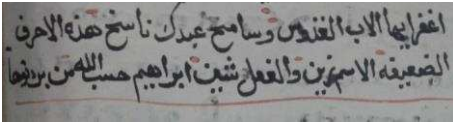 اغفر ايها الاب القدوس وسامح عبدك ناسخ هذه الاحرف
الضعيفه الاسم زين والفعل شين ابراهيم حسب الله من